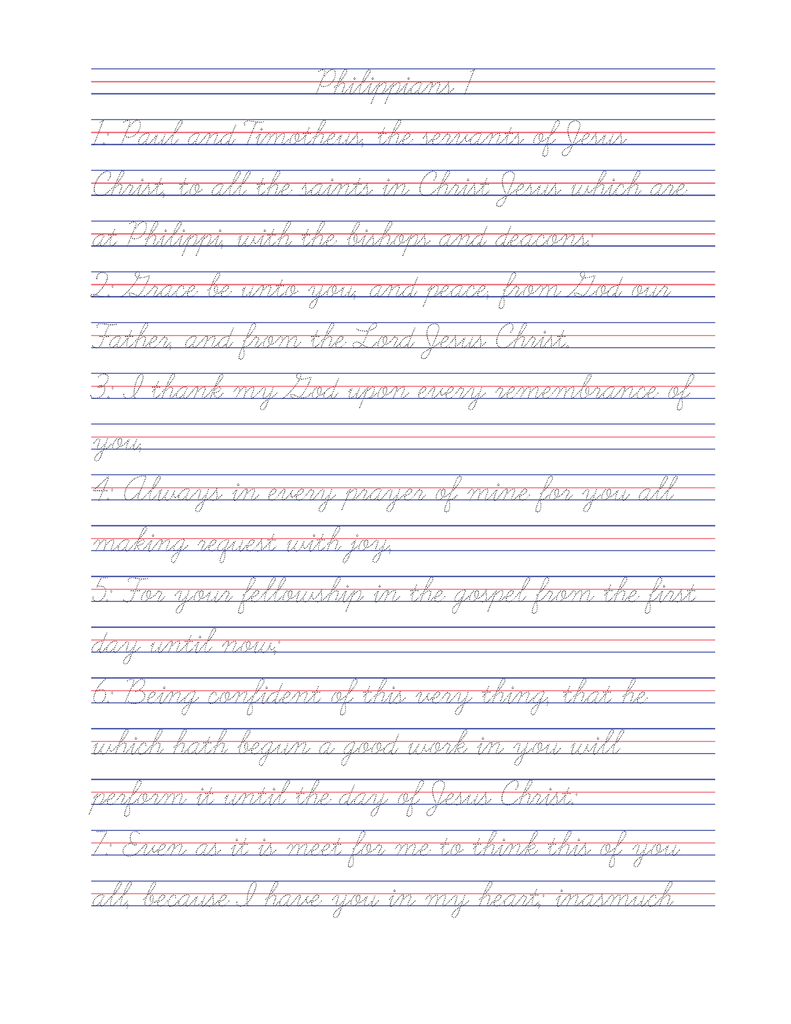 Philippians 1
1: Paul and Timotheus, the servants of Jesus
Christ, to all the saints in Christ Jesus which are
at Philippi, with the bishops and deacons:
2: Grace be unto you, and peace, from God our
Father, and from the Lord Jesus Christ.
3: I thank my God upon every remembrance of
you,
4: Always in every prayer of mine for you all
making request with joy,
5: For your fellowship in the gospel from the first
day until now;
6: Being confident of this very thing, that he
which hath begun a good work in you will
perform it until the day of Jesus Christ:
7: Even as it is meet for me to think this of you
all, because I have you in my heart; inasmuch